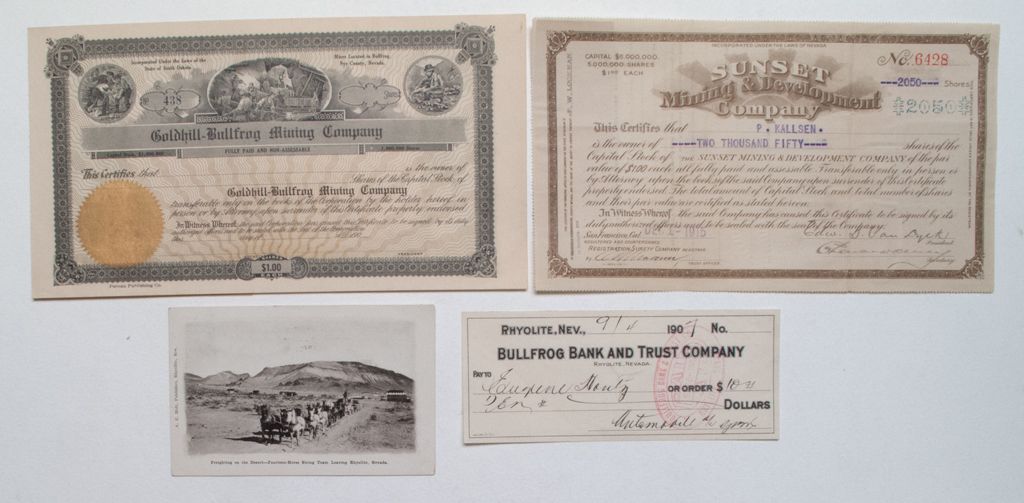 Incorporated Under the Laws of the
State of South Dakota
Mines Located in Bullfrog,
Nye County, Nevada.
No 438
Shares
Goldhill-Bullfrog Mining Company
Capital Stock, $1,000,000
FULLY PAID AND NON-ASSESSABLE
1,000,000 Shares
This Certifies that
is the owner of
Shares of the Capital Stock of
Goldhill-Bullfrog Mining Company
transferable only on the books of the Corporation by the holder hereof in
person or by Attorney upon surrender of this Certificate properly endorsed
In Witness Whereof, the said Corporation has caused this Certificate to be signed by its duly
authorized officers and to be sealed with the seal of the Corporation
this
PRESIDENT
SHARES
$1.00
EACH
Publishing Co.
INCORPORATED UNDER THE LAWS OF NEVADA
CAPITAL $5,000,000.
5,000,000 SHARES
$1.00 EACH
No. 6428
----2050---- Shares
$2050$
SUNSET
Mining & Development
Company
This Certifies that P. KALLSEN.
is the owner of ----TWO THOUSAND FIFTY---- shares of the
Capital Stock of THE SUNSET MINING & DEVELOPMENT COMPANY of the par
value of $1.00 each full paid and assessable. Transferable only in person or
by Attorney upon the books of the said Company upon surrender of this Certificate
properly endorsed. The total amount of Capital Stock and total number of shares
and their par value are certified as stated herein.
In Witness Whereof the said Company has caused this Certificate to be signed by its
duly authorized officers and to be sealed with the seal of the Company.
San Francisco, Cal. 1915
REGISTERED AND COUNTERSIGNED
REGISTRATION SURETY COMPANY REGISTRAR
By
TRUST OFFICER
President
Secretary
Freighting on the Desert—Fourteen-Horse String Team Leaving Rhyolite, Nevada.
RHYOLITE, NEV., 9/4 1907 No.
BULLFROG BANK AND TRUST COMPANY
RHYOLITE, NEVADA.
PAY TO
Eugene OR ORDER $10
Ten DOLLARS
Automobile